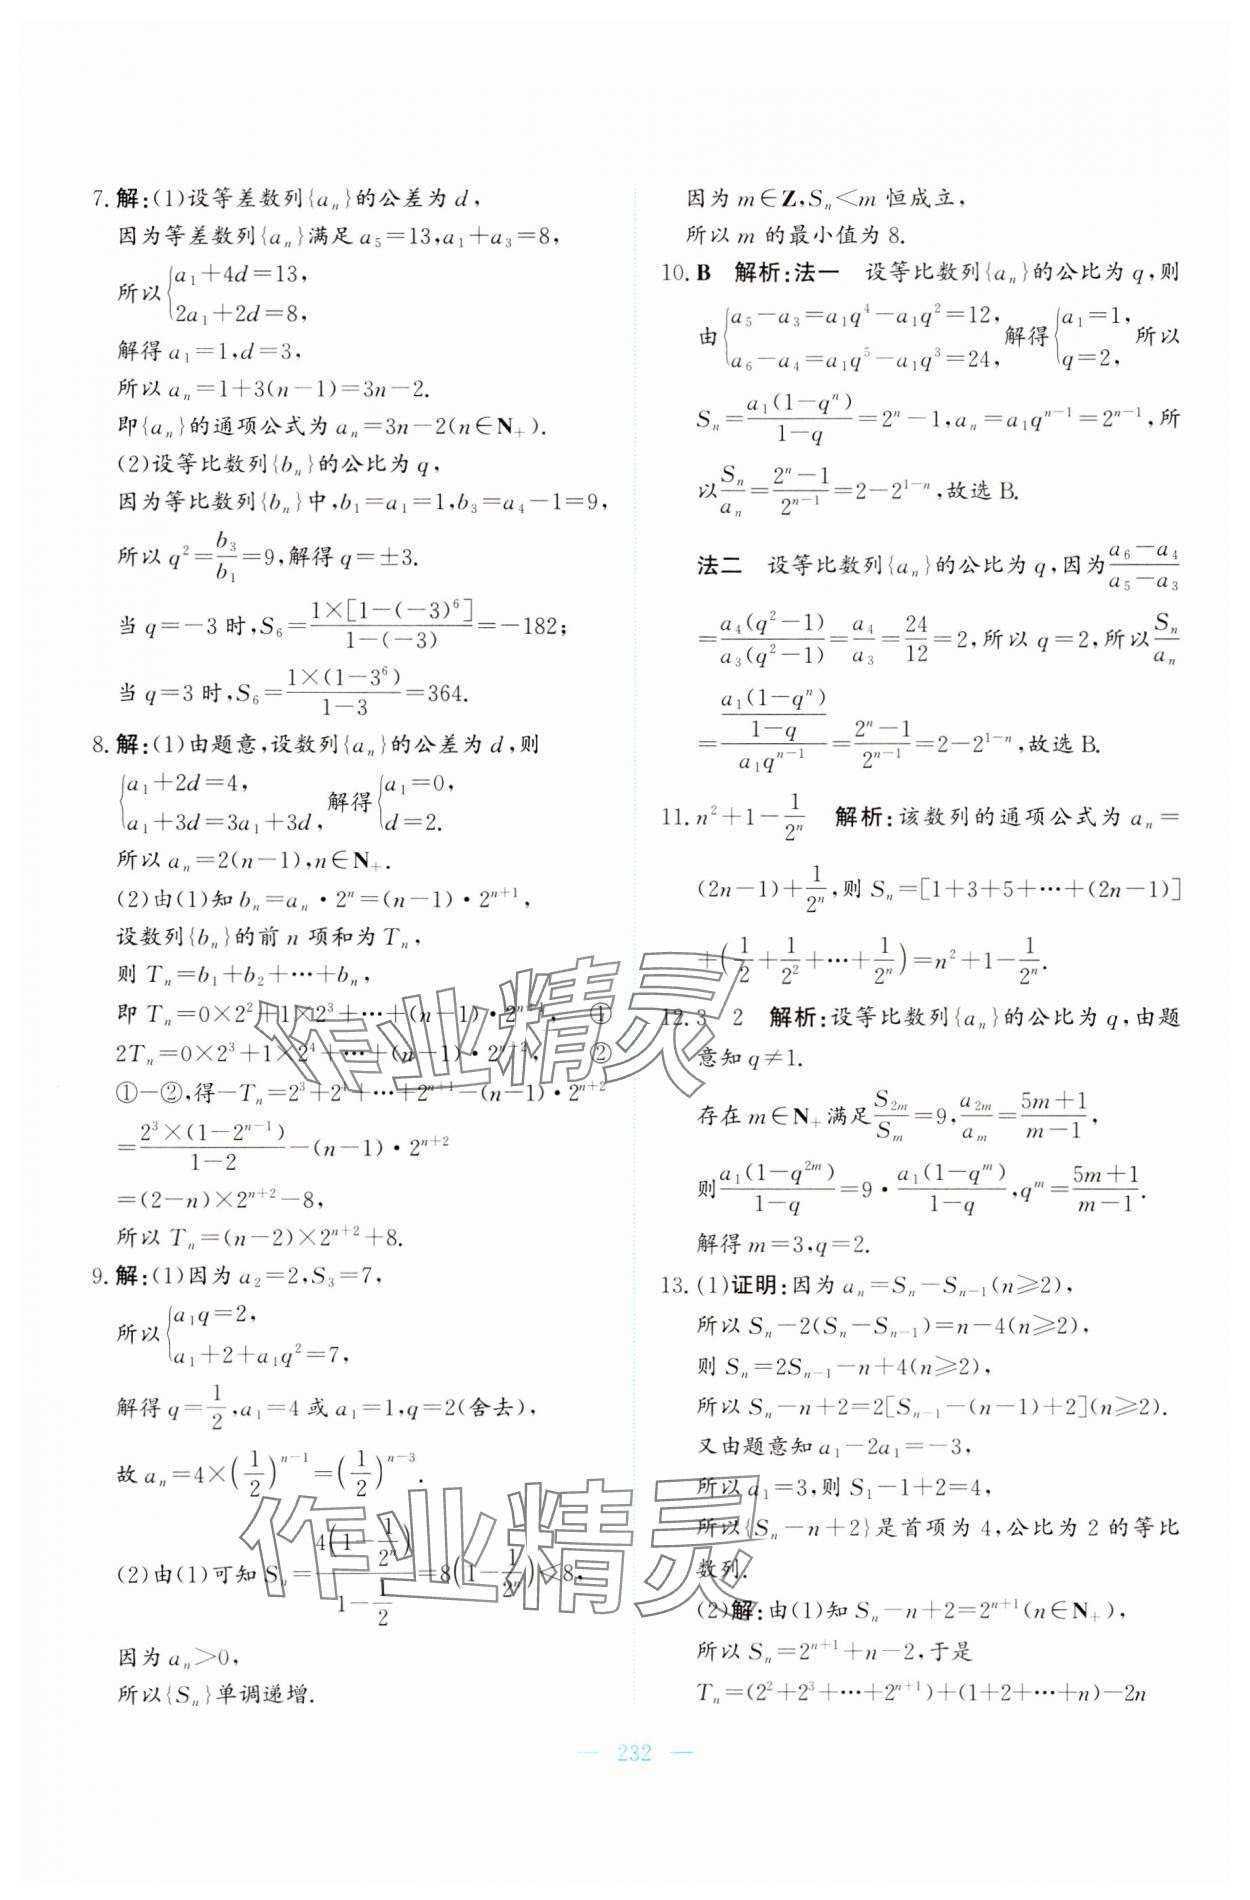 7. 解:(1)设等差数列{aₙ}的公差为 d,
因为等差数列{aₙ}满足 a₅=13,a₁+a₃=8,
所以{a₁+4d=13,
2a₁+2d=8,
解得 a₁=1,d=3,
所以 aₙ=1+3(n-1)=3n-2.
即{aₙ}的通项公式为 aₙ=3n-2(n∈N₊).
(2)设等比数列{bₙ}的公比为 q,
因为等比数列{bₙ}中,b₁=a₁=1,b₃=a₄-1=9,
所以 q²=b₃/b₁=9,解得 q=±3.
当 q=-3 时,S₆=1×[1-(-3)⁶]/1-(-3)=-182;
当 q=3 时,S₆=1×(1-3⁶)/1-3=364.
8. 解:(1)由题意,设数列{aₙ}的公差为 d,则
{a₁+2d=4,
a₁+3d=3a₁+3d, 解得{a₁=0,
d=2.
所以 aₙ=2(n-1),n∈N₊.
(2)由(1)知 bₙ=aₙ·2ⁿ=(n-1)·2ⁿ⁺¹,
设数列{bₙ}的前 n 项和为 Tₙ,
则 Tₙ=b₁+b₂+⋯+bₙ,
即 Tₙ=0×2²+1×2³+⋯+(n-1)·2ⁿ⁺¹, ①
2Tₙ=0×2³+1×2⁴+⋯+(n-1)·2ⁿ⁺², ②
①-②,得-Tₙ=2³+2⁴+⋯+2ⁿ⁺¹-(n-1)·2ⁿ⁺²
=2³×(1-2ⁿ⁻¹)/1-2-(n-1)·2ⁿ⁺²
=(2-n)×2ⁿ⁺²-8,
所以 Tₙ=(n-2)×2ⁿ⁺²+8.
9. 解:(1)因为 a₂=2,S₃=7,
所以{a₁q=2,
a₁+2+a₁q²=7,
解得 q=1/2,a₁=4 或 a₁=1,q=2(舍去),
故 aₙ=4×(1/2)ⁿ⁻¹=(1/2)ⁿ⁻³.
(2)由(1)可知 Sₙ=4(1-1/2ⁿ)/1-1/2=8(1-1/2ⁿ)<8,
因为 aₙ>0,
所以{Sₙ}单调递增.
因为 m∈Z,Sₙ<m 恒成立,
所以 m 的最小值为 8.
10. B 解析:法一 设等比数列{aₙ}的公比为 q,则
由{a₅-a₃=a₁q⁴-a₁q²=12,
a₆-a₄=a₁q⁵-a₁q³=24, 解得{a₁=1,
q=2, 所以
Sₙ=a₁(1-qⁿ)/1-q=2ⁿ-1,aₙ=a₁qⁿ⁻¹=2ⁿ⁻¹,所
以Sₙ/aₙ=2ⁿ-1/2ⁿ⁻¹=2-2¹⁻ⁿ,故选 B.
法二 设等比数列{aₙ}的公比为 q,因为a₆-a₄/a₅-a₃
=a₄(q²-1)/a₃(q²-1)=a₄/a₃=24/12=2,所以 q=2,所以Sₙ/aₙ
=a₁(1-qⁿ)/1-q/a₁qⁿ⁻¹=2ⁿ-1/2ⁿ⁻¹=2-2¹⁻ⁿ,故选 B.
11. n²+1-1/2ⁿ 解析:该数列的通项公式为 aₙ=
(2n-1)+1/2ⁿ,则 Sₙ=[1+3+5+⋯+(2n-1)]
+(1/2+1/2²+⋯+1/2ⁿ)=n²+1-1/2ⁿ.
12. 3 2 解析:设等比数列{aₙ}的公比为 q,由题
意知 q≠1.
存在 m∈N₊满足S₂ₘ/Sₘ=9,a₂ₘ/aₘ=5m+1/m-1,
则a₁(1-q²ᵐ)/1-q=9·a₁(1-qᵐ)/1-q,qᵐ=5m+1/m-1.
解得 m=3,q=2.
13. (1)证明:因为 aₙ=Sₙ-Sₙ₋₁(n≥2),
所以 Sₙ-2(Sₙ-Sₙ₋₁)=n-4(n≥2),
则 Sₙ=2Sₙ₋₁-n+4(n≥2),
所以 Sₙ-n+2=2[Sₙ₋₁-(n-1)+2](n≥2).
又由题意知 a₁-2a₁=-3,
所以 a₁=3,则 S₁-1+2=4,
所以{Sₙ-n+2}是首项为 4,公比为 2 的等比
数列.
(2)解:由(1)知 Sₙ-n+2=2ⁿ⁺¹(n∈N₊),
所以 Sₙ=2ⁿ⁺¹+n-2,于是
Tₙ=(2²+2³+⋯+2ⁿ⁺¹)+(1+2+⋯+n)-2n
— 232 —
作业精灵
作业精灵